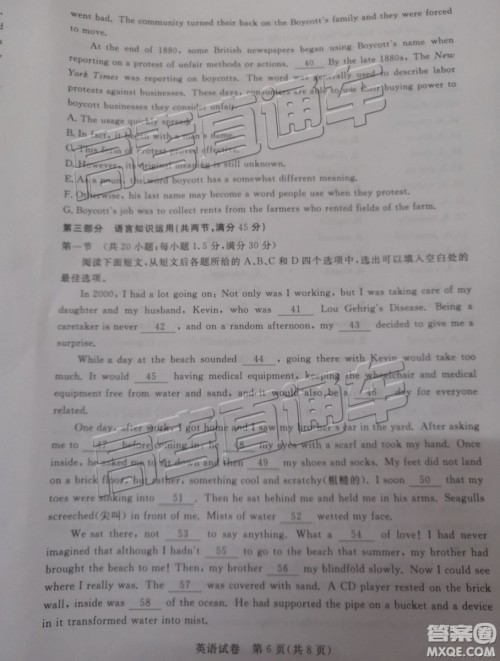 went bad. The community turned their back on the Boycott's family and they were forced
to move.
At the end of 1880, some British newspapers began using Boycott's name when
reporting on a protest of unfair methods or actions. 40 By the late 1880s, The New
York Times was reporting on boycotts. The word was generally used to describe labor
protests against businesses. These days, consumers are able to use their buying power to
boycott businesses they consider unfair.
A. The usage quickly spread.
B. In fact, it began with a man's name.
C. This form of Protest proved effective.
D. However, its original meaning is still unknown.
E. As a noun, the word boycott has a somewhat different meaning.
F. Otherwise, his last name may become a word people use when they protest.
G. Boycott's job was to collect rents from the farmers who rented fields of farming.
第三部分 语言知识运用(共两节,满分45分)
第一节 (共20小题;每小题1.5分,满分30分)
阅读下面短文,从短文后各题所给的A、B、C和D四个选项中,选出可以填入空白处的
最佳选项。
In 2000, I had a lot going on: Not only was I working, but I was taking care of my
daughter and my husband, Kevin, who was 41 Lou Gehrig's Disease. Being a
caretaker is never 42 , and on a random afternoon, my 43 decided to give me a
surprise.
While a day at the beach sounded 44 , going there with Kevin would take too
much. It would 45 having medical equipment, keeping the wheelchair and medical
equipment free from water and sand, and it would also be a 46 for everyone
related.
One day, after work, I got home and I saw my brother's car in the yard. After asking
me to 47 before coming in, he 48 my eyes with a scarf and took my hand. Once
inside, he asked me to sit down and then 49 my shoes and socks. My feet did not land
on a brick floor, but rather, something cool and scratchy(粗糙的). I soon 50 that my
toes were sinking into 51 . Then he sat behind me and held me in his arms. Seagulls
screeched(尖叫) in front of me. Mists of water 52 wetted my face.
We sat there, not 53 to say anything. What a 54 of love! I had never
imagined that although I hadn't 55 to go to the beach that summer, my brother had
brought the beach to me! Then, my brother 56 my blindfold slowly. Now I could see
where I really was. The 57 was covered with sand. A CD player rested on the brick
wall, inside was 58 of the ocean. He had supported the pipe on a bucket and a device
in it transformed water into mist.
英语试卷 第6页(共8页)
高考直通车
高考直通车
答案圈
MXQE.COM